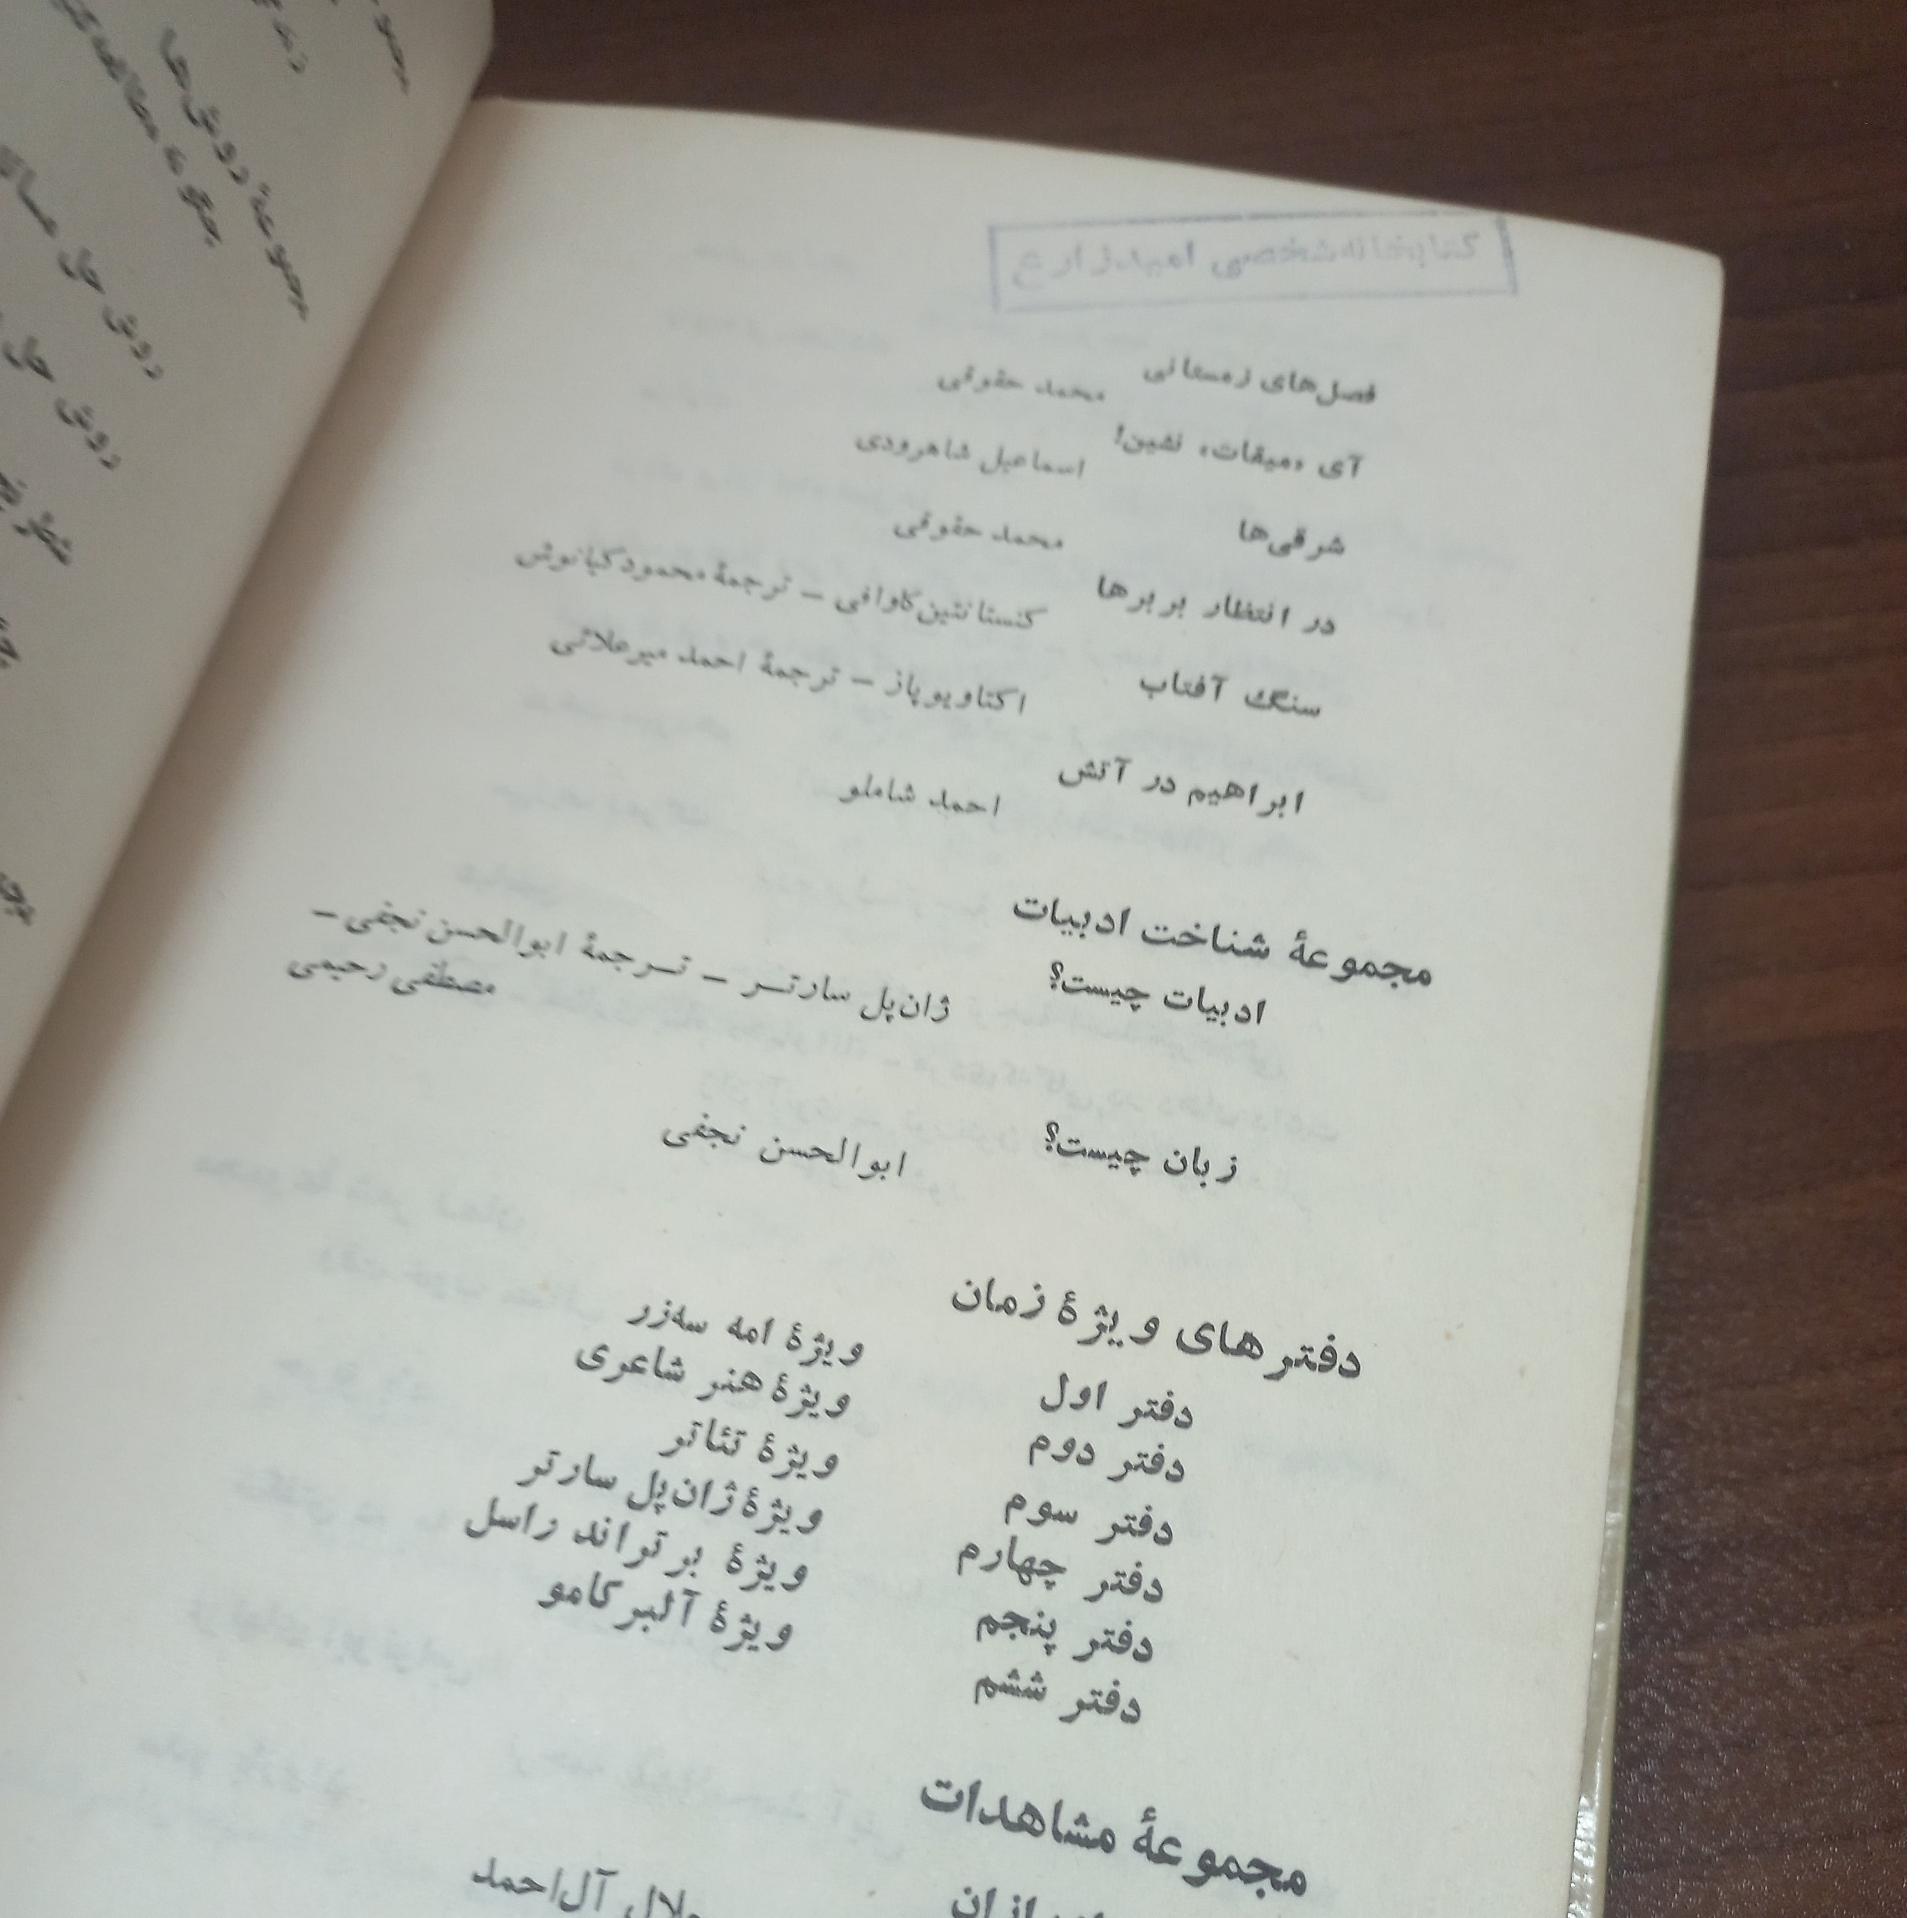 کتابخانه شخصی امید زارع
فصل‌های زمستانی محمد حقوقی
آی «میقات» نشین! اسماعیل شاهرودی
شرقی‌ها محمد حقوقی
در انتظار بربرها کنستانتین کاوافی – ترجمهٔ محمود کیانوش
سنگ آفتاب اکتاویو پاز – ترجمهٔ احمد میرعلائی
ابراهیم در آتش احمد شاملو
مجموعهٔ شناخت ادبیات
ادبیات چیست؟ ژان‌پل سارتر – ترجمهٔ ابوالحسن نجفی –
مصطفی رحیمی
زبان چیست؟ ابوالحسن نجفی
دفترهای ویژهٔ زمان
دفتر اول ویژهٔ امه سه‌زر
دفتر دوم ویژهٔ هنر شاعری
دفتر سوم ویژهٔ تئاتر
دفتر چهارم ویژهٔ ژان‌پل سارتر
دفتر پنجم ویژهٔ برتراند راسل
دفتر ششم ویژهٔ آلبر کامو
مجموعهٔ مشاهدات
جلال آل‌احمد
مجموعهٔ روش
روش حل
روش حل